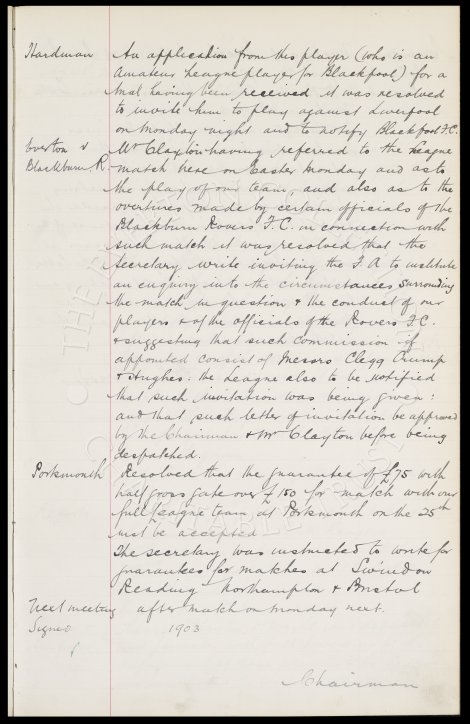 Hardman An application from this player (who is an
Amateur League player for Blackpool) for a
trial having been received it was resolved
to invite him to play against Liverpool
on Monday night and to notify Blackpool F.C.
Everton v Mr Clayton having referred to the League
Blackburn R. match here on Easter Monday and as to
the play of our team, and also as to the
overtures made by certain officials of the
Blackburn Rovers F.C. in connection with
such match it was resolved that the
Secretary write inviting the F.A to institute
an enquiry into the circumstances surrounding
the match in question & the conduct of our
players & of the officials of the Rovers F.C.
& suggesting that such commission if
appointed consist of Messrs Clegg Crump
& Hughes: the League also to be notified
that such invitation was being given:
and that such letter of invitation be approved
by the Chairman & Mr Clayton before being
despatched.
Portsmouth Resolved that the guarantee of £75 with
half gross gate over £150 for match with our
full League team at Portsmouth on the 25th
inst be accepted
The secretary was instructed to write for
guarantees for matches at Swindon
Reading Northampton & Bristol
Next meeting after match on Monday next.
Signed 1903
Chairman